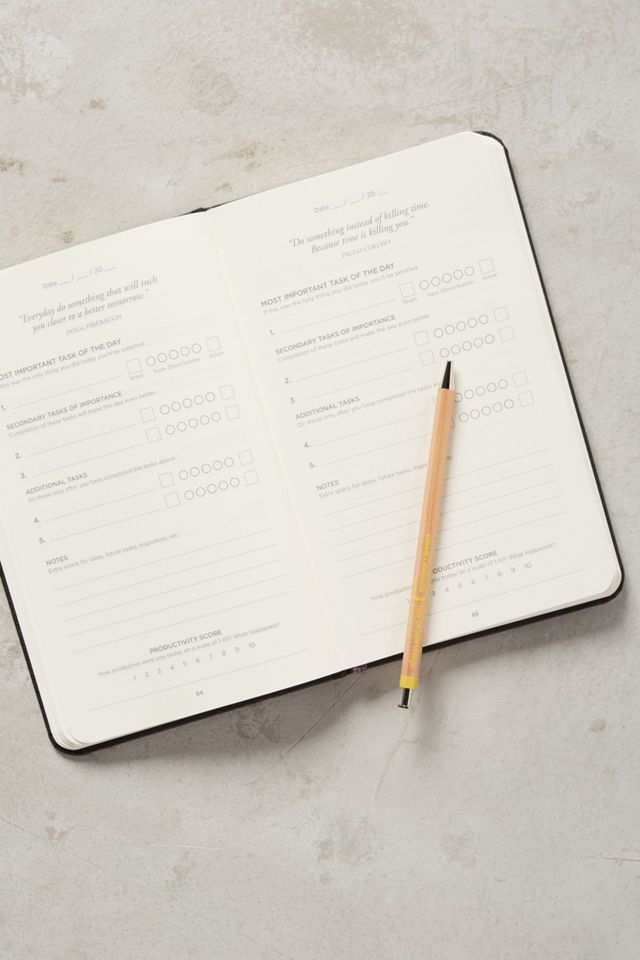 Date __ / __ / 20 __
"Everyday do something that will inch
you closer to a better tomorrow."
DOUG FIREBAUGH
MOST IMPORTANT TASK OF THE DAY
this was the only thing you did today you'd be satisfied.
1.
Target Track 25min/Bubble Actual
SECONDARY TASKS OF IMPORTANCE
Completion of these tasks will make the day even better.
2.
3.
ADDITIONAL TASKS
Do these only after you have completed the tasks above.
4.
5.
NOTES
Extra space for ideas, future tasks, inspiration, etc.
PRODUCTIVITY SCORE
How productive were you today on a scale of 1-10? What happened?
1 2 3 4 5 6 7 8 9 10
84
Date __ / __ / 20 __
"Do something instead of killing time.
Because time is killing you."
PAULO COELHO
MOST IMPORTANT TASK OF THE DAY
If this was the only thing you did today you'd be satisfied.
1.
Target Track 25min/Bubble Actual
SECONDARY TASKS OF IMPORTANCE
Completion of these tasks will make the day even better.
2.
3.
ADDITIONAL TASKS
Do these only after you have completed the tasks
4.
5.
NOTES
Extra space for ideas, future tasks,
PRODUCTIVITY SCORE
How productive you today on a scale of 1-10? What happened?
3 4 5 6 7 8 9 10
85